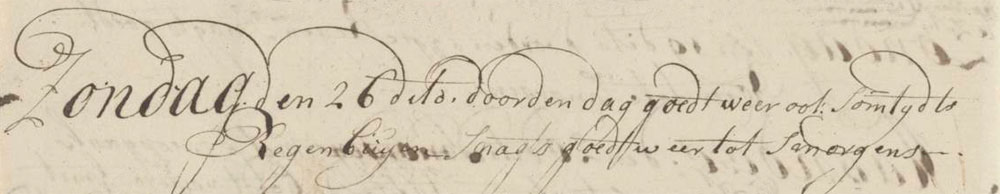 Zondag den 26 dito. door den dag goedt weer ook Somtydts
Regenbuÿen Snagts goedt weer tot Smorgens